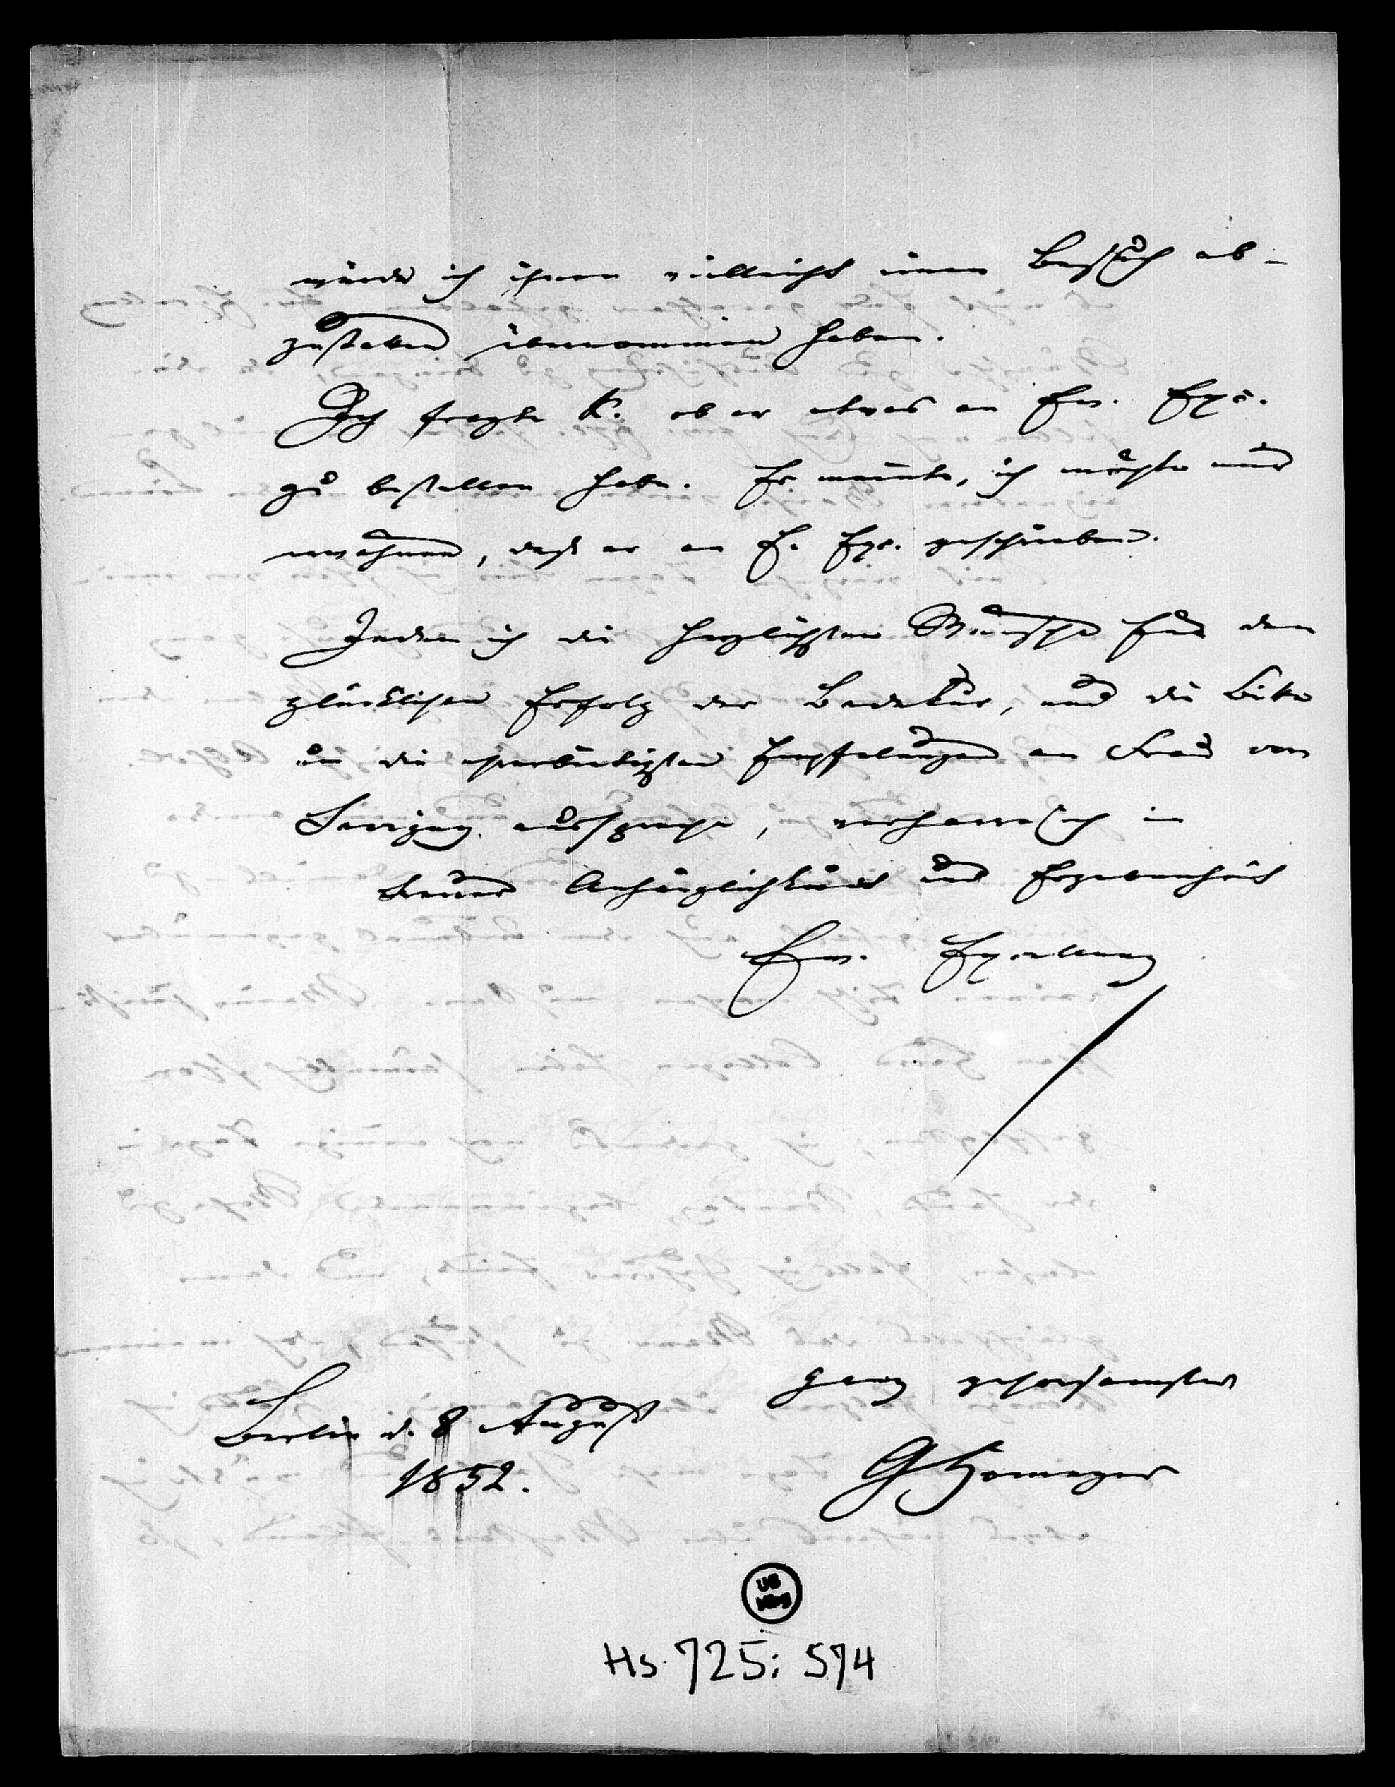 würde ich ihnen vielleicht einen Besuch ab-
zustatten übernommen haben.
Ich fragte K. ob er etwas an Ew. Exc.
zu bestellen habe. Er meinte, ich möchte nur
erwähnen, daß er an E. Exc. geschrieben.
Indem ich die herzlichsten Wünsche für den
glücklichen Erfolg der Badekur, und die Bitte
um die ehrerbietigsten Empfelungen an Frau von
Savigny ausspreche, verharre ich in
treuer Anhänglichkeit und Ergebenheit
Ew. Excellenz
ganz gehorsamster
Berlin d. 8 August
1852.
G Homeyer
UB
Hs. 725: 574